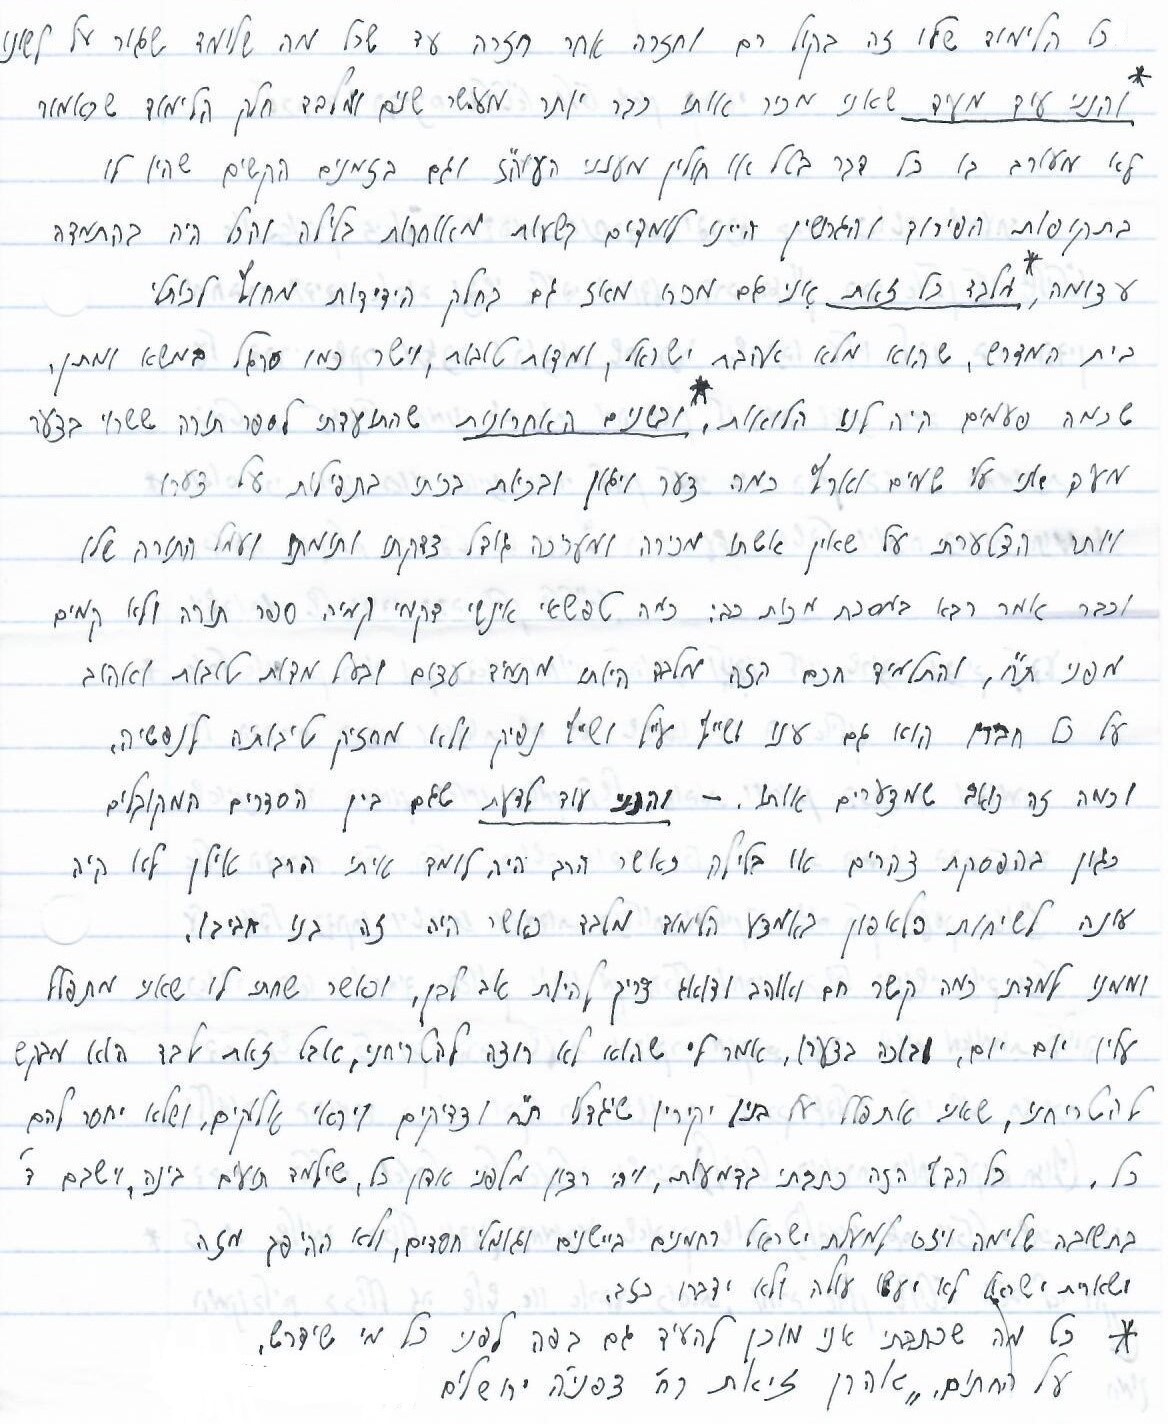 כל הלימוד שלו זה בקול רם וחזרה אחר חזרה עד שכל מה שלומד שגור על לשונו
* והנני עוד מעיד שאני מכיר אותו כבר יותר מעשר שנים ומלבד חלק הלימוד שכאמור
לא מעורב בו כל דבר בטל או חולין מעניני העוה"ז וגם בזמנים הקשים שהיו לו
בתקופות הפירוד והגרושין היינו לומדים בשעות מאוחרות בלילה והכל היה בהתמדה
עצומה, * מלבד כל זאת אני גם מכרו מאז גם בחלק הידידות מחוץ לכותלי
בית המדרש, שהוא מלא אהבת ישראל, ומדות טובות, וישר כמו סרגל במשא ומתן,
שכמה פעמים היה לנו הלואות, * ובשנים האחרונות שהתועדתי לספר תורה ששרוי בצער
מעיד אני עלי שמים וארץ כמה צער ויגון ובכיות בכיתי בתפילות על צערו
ויותר הצטערתי על שאין אשתו מכירה ומעריכה גודל צדקתו ותומתו ועמל התורה שלו
וכבר אמר רבא במסכת מכות כב: כמה טפשאי אינשי דקמי קמיה ספר תורה ולא קמים
מפני ת"ח, והתלמיד חכם הזה מלבד היותו מתמיד עצום ובעל מדות טובות ואהוב
על כל חבריו הוא גם ענו ושייף עייל ושייף נפיק ולא מחזיק טיבותה לנפשיה,
וכמה זה כואב שמצערים אותו. - והנני עוד לדעת שגם בין הסדרים המקובלים
כגון בהפסקת צהרים או בלילה כאשר הרב היה לומד איתי הרב אילן לא היה
עונה לשיחות פלאפון באמצע הלימוד מלבד כאשר היה זה בנו חביבו,
וממנו למדתי כמה קשר חם ואוהב ודואג צריך להיות אב לבן, וכאשר שחתי לו שאני מתפלל
עליו יום יום, ובוכה בצערו, אמר לי שהוא לא רוצה להטריחני, אבל זאת לבד הוא מבקש
להטריחני, שאני אתפלל על בניו יקיריו שיגדלו ת"ח וצדיקים ויראי אלוקים, ושלא יחסר להם
כל, כל הדף הזה כתבתי בדמעות, ויהי רצון מלפני אדון כל, שילמד תועים בינה, וישבם ד'
בתשובה שלימה ויזכו למעלת ישראל רחמנים ביישנים וגומלי חסדים, ולא ההיפך מזה
ושארית ישראל לא יעשו עולה ולא ידברו כזב,
* כל מה שכתבתי אני מוכן להעיד גם בפה לפני כל מי שידרש,
על החתום, אהרן זיאת רח' צפניה ירושלים